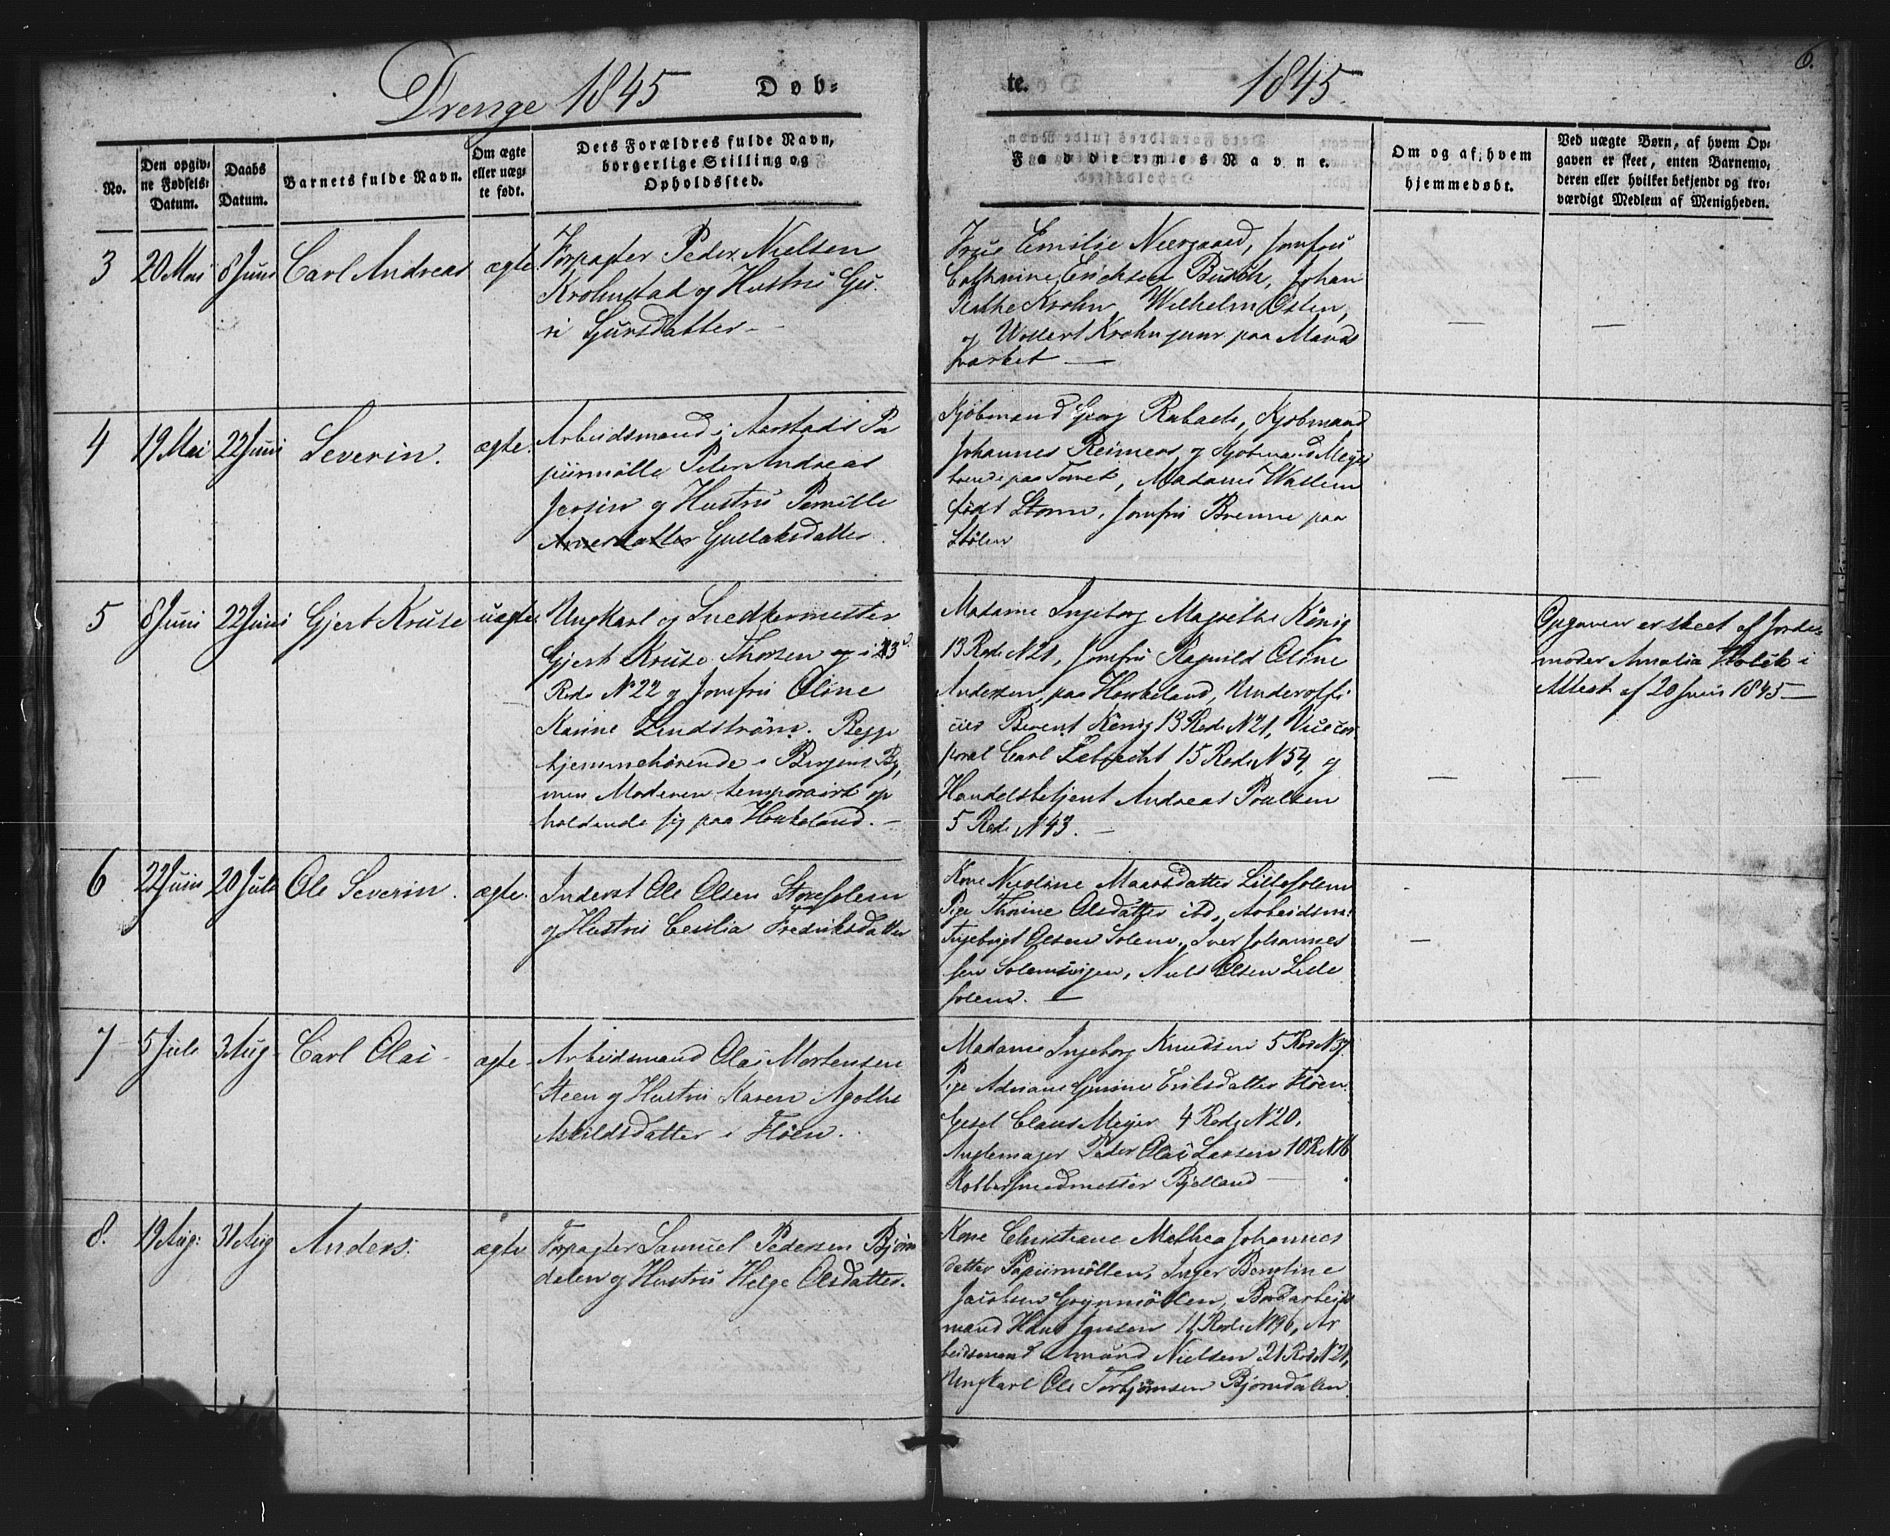 Drenge 1845 Dob-
te. 1845. 6.
No.
Den opgiv-
ne Fødsels-
Datum.
Daabs
Datum.
Barnets fulde Navn.
Om ægte
eller uæg-
te født.
Dets Forældres fulde Navn,
borgerlige Stilling og
Opholdssted.
Faddernes Navne.
Om og af hvem
hjemmedøbt.
Ved uægte Børn, af hvem Op-
gaven er skeet, enten Barnemo-
deren eller hvilket bekjendt og tro-
værdigt Medlem af Menigheden.
3 20 Mai 8 Juni Carl Andreas ægte
Forpagter Peder Nielsen
Krohnstad og Hustru Gu-
ri Sjursdatter -
Frue Emilie Neergaard, Jomfru
Cathrine Erichsen Busch, Johan
Krohn Wilhelm Osten,
og Wollert Krohn junr paa
—
—
4 19 Mai 22 Juni Severin. ægte.
Arbeidsmand i Aarstads Pa
piirmølle Peter Andreas
Jensen og Hustru Pernille
Arnesdatter Gullaksdatter.
Kjøbmand Georg Kjøbmand
Johannes Reimers og Kjøbmand Meyer
paa Torvet, Madame Wallem
født Storm, Jomfru Brenne paa
Stølen
5 8 Juni 22 Juni Gjert Kruse uægte
Ungkarl og Snedkermester
Gjert Kruse Thorsen og i 23d
Rode No 22 og Jomfru Oline
Karine Lindstrøm. Begge
hjemmehörende i Bergens By,
men Moderen temporairt op
holdende sig paa Houkeland. -
Madame Ingeborg Magrethe König
13 Rode N 21, Jomfru Ragnild Oline
Andersen paa Houkeland, Underoffi
cier Berent König 13 Rode N 21, Vicecor
poral Carl Lebrecht 15 Rode N 54, og
Handelsbetjent Andreas Poulsen
5 Rode N 43. -
—
—
Opgaven er skeet af Jorde-
moder Amalia Holck i
Attest af 20 Juni 1845 -
6 22 Juni 20 Juli Ole Severin. ægte.
Inderst Ole Olsen Storesolem
og Hustru Cecilia Fredriksdatter
Kone Nicoline Lillesolem
Pige Thorine Olsdatter ibd, Arbeidsm:
Ingebrigt Olsen Solem, Iver Johannes
sen Solemsvigen, Niels Olsen Lille
solem. —
—
7 5 Juli 3 Aug Carl Olai - ægte -
Arbeidsmand Olai Mortensen
Steen og Hustru Karen Agathe
Askildsdatter i Flöen.
Madame Ingeborg Knudsen 5 Rode N 37.
Pige Adriane Gurine Eriksdatter Flöen.
Gesel Claus Meyer 4 Rode N 20.
Anglemager Peder Olai Larsen 10 R. N 16
Kobbersmedmester Bjelland
8. 19 Aug: 31 Aug Anders. ægte
Forpagter Samuel Pedersen Björn
dalen og Hustru Helge Olsdatter.
Kone Christiane Mathea Johannes
datter Papiirmöllen, Inger Bentine
Jacobsen Grynmöllen,
mand Hans Jansen 11 Rode N 196, Ar
beidsmand Amund Nielsen 21 Rode N 21,
Ungkarl Ole Torbjörnsen Björndalen